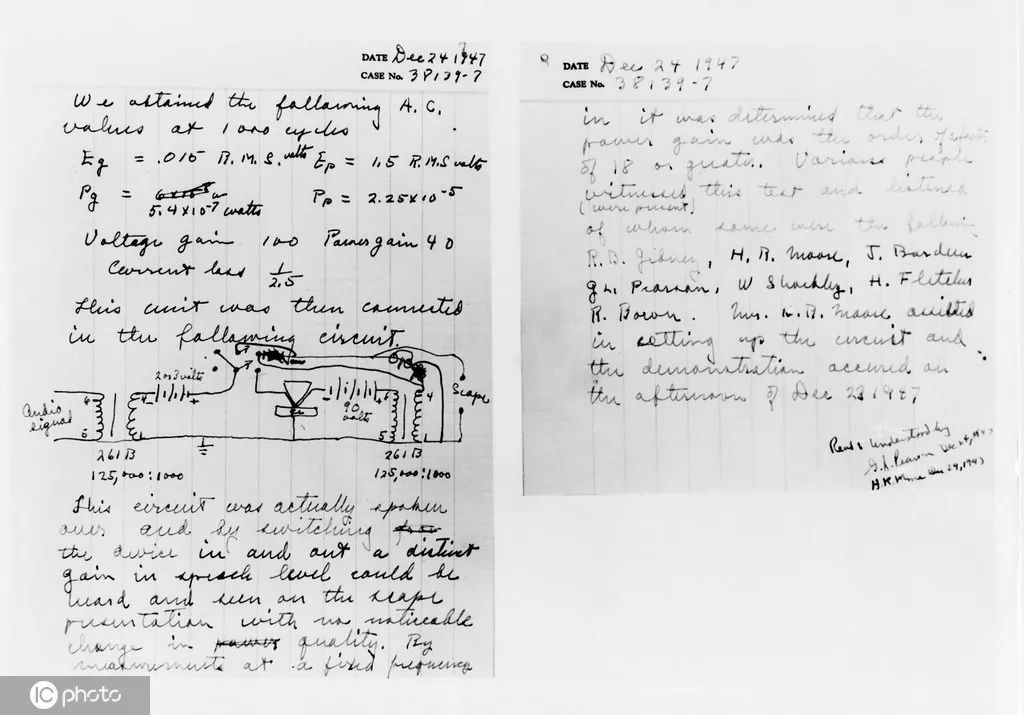 DATE Dec 24 1947
CASE No. 38139-7
We obtained the following A.C.
values at 1000 cycles
Eg = .015 R.M.S. volts Ep = 1.5 R.M.S volts
Pg = 5.4×10⁻⁷ watts Pp = 2.25×10⁻⁵
Voltage gain 100 Power gain 40
Current loss 1/2.5
This unit was then connected
in the following circuit.
2 or 3 volts
90 volts
Scope
Audio signal
261B
125,000:1000
261B
125,000:1000
This circuit was actually spoken
over and by switching
the device in and out a distinct
gain in speech level could be
heard and seen on the scope
presentation with no noticeable
change in quality. By
measurements at a fixed frequency
DATE Dec 24 1947
CASE No. 38139-7
in it was determined that the
power gain was the order of
of 18 or greater. Various people
witnessed this test and listened
(were present)
of whom some were the following
R.B. Gibney, H.R. Moore, J. Bardeen
G.L. Pearson, W Shockley, H. Fletcher
R. Bown. Mr. H.R. Moore assisted
in setting up the circuit and
the demonstration occured on
the afternoon of Dec 23 1947
Read & Understood by
G.L. Pearson Dec 24, 1947
H.R. Moore Dec 24, 1947
IC photo